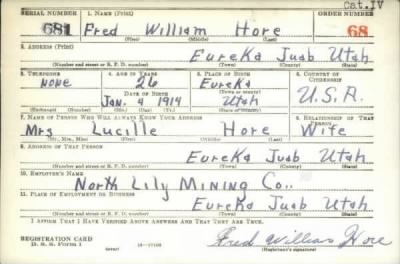 Cat. IV
SERIAL NUMBER 1. NAME (Print) ORDER NUMBER
681 Fred William Hore 68
(First) (Middle) (Last)
2. ADDRESS (Print)
Eureka Juab Utah
(Number and street or R. F. D. number) (Town) (County) (State)
3. TELEPHONE 4. AGE IN YEARS 5. PLACE OF BIRTH 6. COUNTRY OF CITIZENSHIP
none 26 Eureka
(Town or county)
DATE OF BIRTH
Jan. 4 1914 Utah U.S.A.
(Exchange) (Number) (Mo.) (Day) (Yr.) (State or country)
7. NAME OF PERSON WHO WILL ALWAYS KNOW YOUR ADDRESS 8. RELATIONSHIP OF THAT PERSON
Mrs Lucille Hore Wife
(Mr., Mrs., Miss) (First) (Middle) (Last)
9. ADDRESS OF THAT PERSON
Eureka Juab Utah
(Number and street or R. F. D. number) (Town) (County) (State)
10. EMPLOYER'S NAME
North Lily Mining Co..
11. PLACE OF EMPLOYMENT OR BUSINESS
Eureka Juab Utah
(Number and street or R. F. D. number) (Town) (County) (State)
I AFFIRM THAT I HAVE VERIFIED ABOVE ANSWERS AND THAT THEY ARE TRUE.
REGISTRATION CARD
D. S. S. Form 1 Fred William Hore
(Registrant's signature)